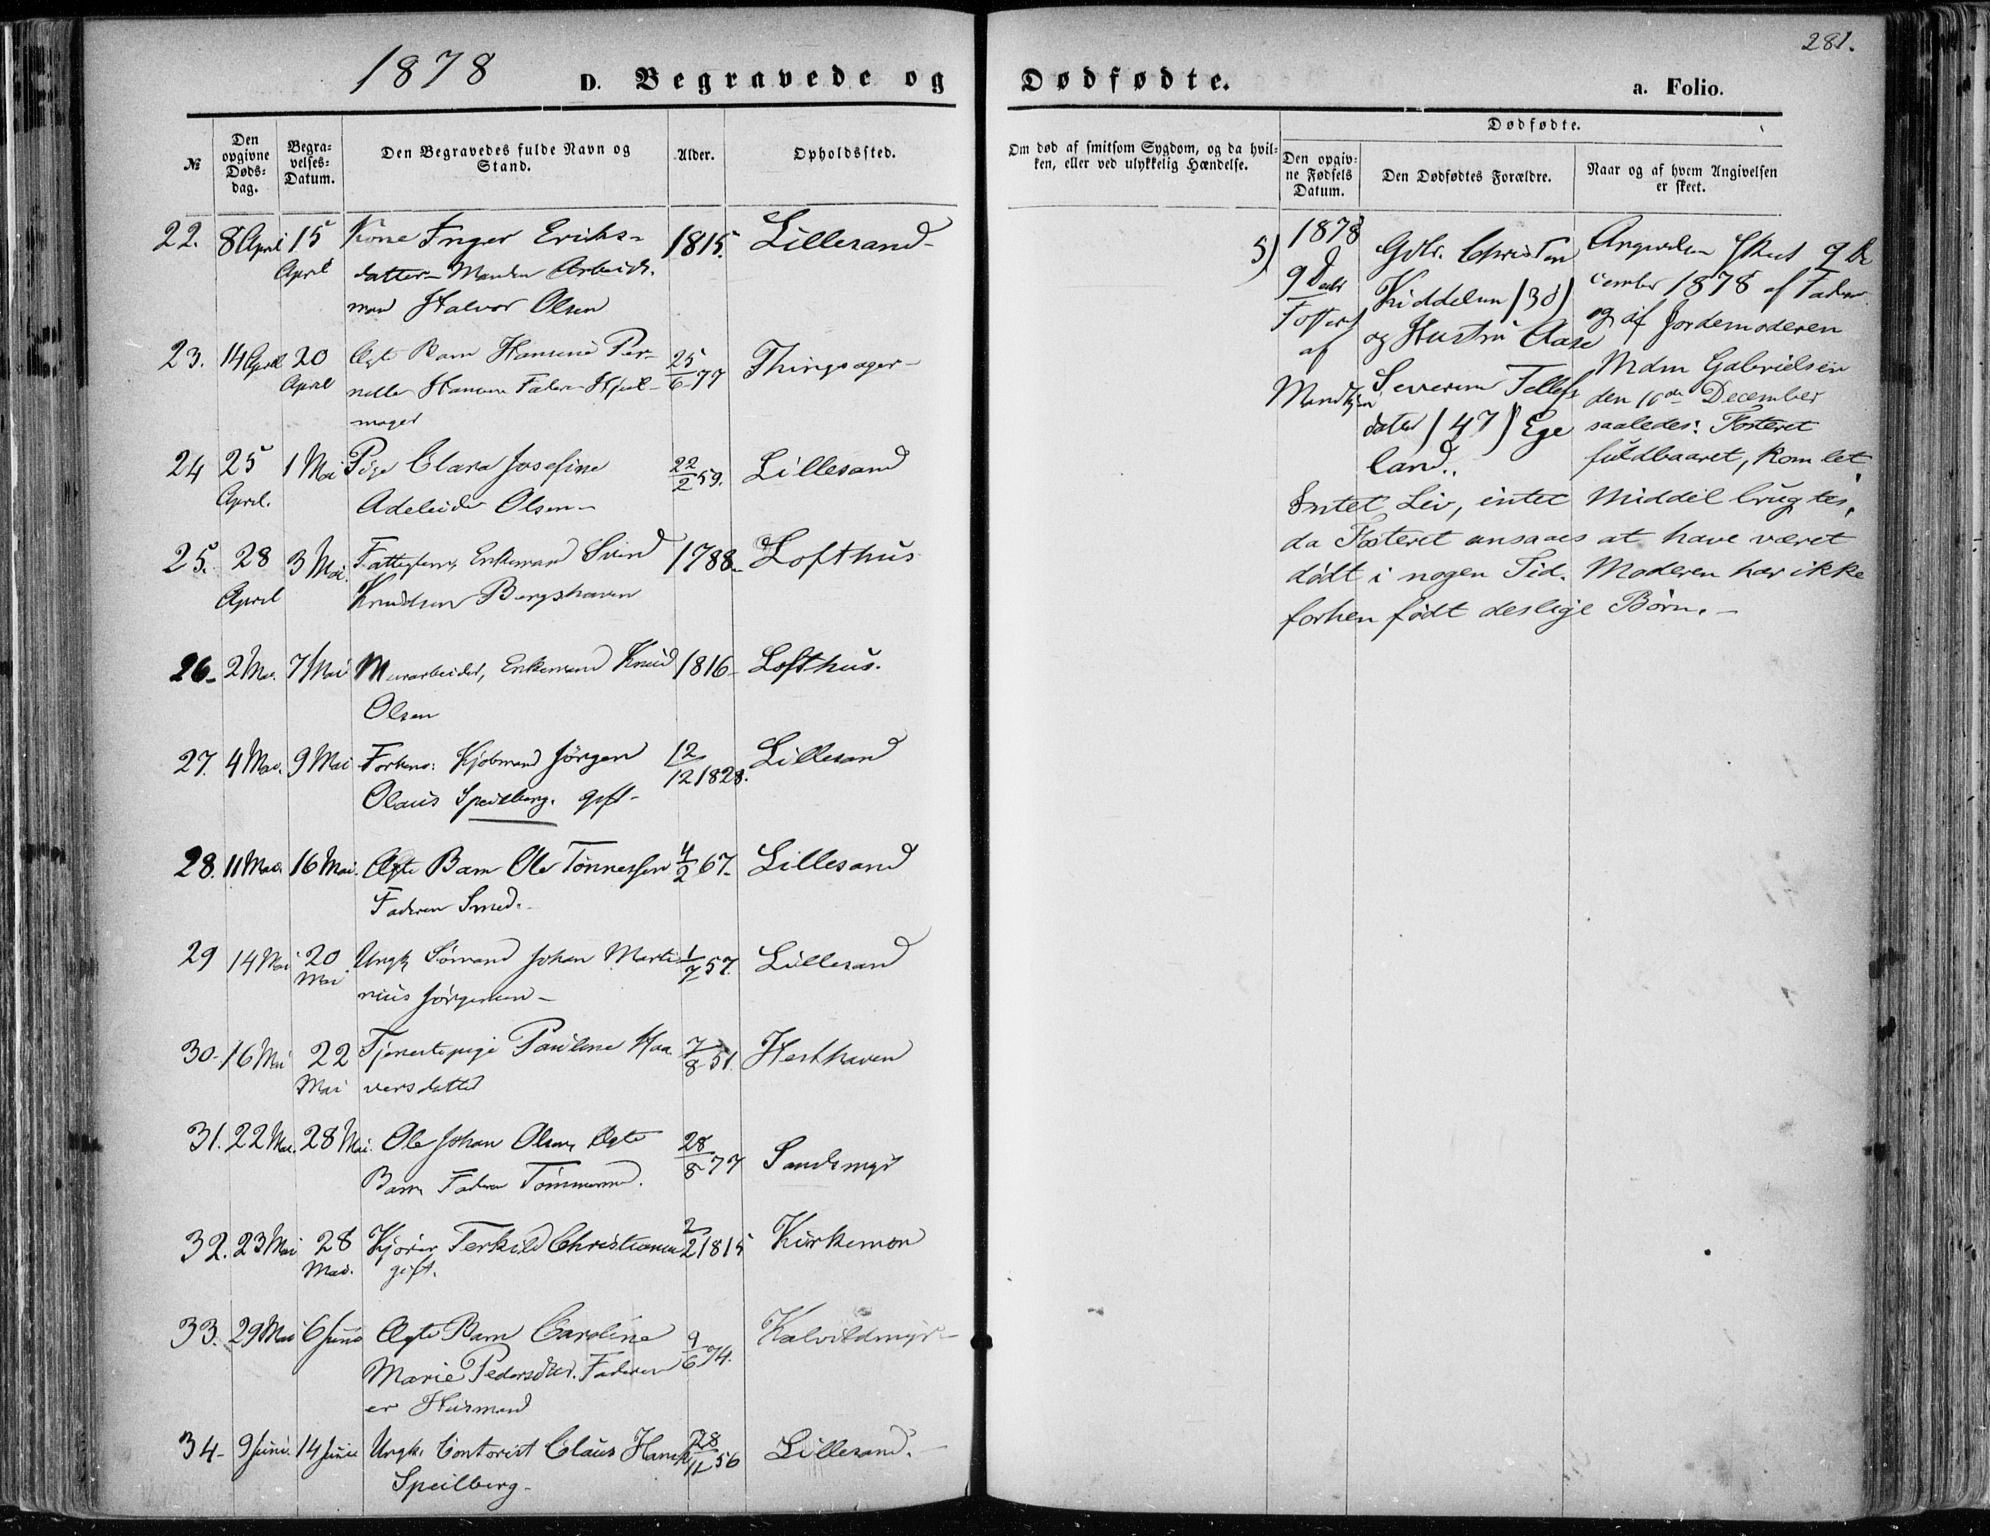 1878
D. Begravede og Dødfødte.
a. Folio.
281.
№
Den opgivne Døds-dag.
Begra-velses-Datum.
Den Begravedes fulde Navn og Stand.
Alder.
Opholdssted.
Om død af smitsom Sygdom, og da hvil-ken, eller ved ulykkelig Hændelse.
Dødfødte.
Den opgiv-ne Fødsels Datum.
Den Dødfødtes Forældre.
Naar og af hvem Angivelsen er skeet.
22. 8 April 15 April Kone Inger Eriks- 1815. Lillesand-
datter- Manden Arbeids-
mand Halvor Olsen
23. 14 April 20 April Ægte Barn Hansine Per- 25/6 77 Thingsager-
nelle Hansen Fader Hjul-
mager
24 25 April. 1 Mai Pige Clara Josefine 22/2 59. Lillesand
Adeleide Olsen-
25. 28 April 3 Mai. Fattiglem, Enkemand Svend 1788- Lofthus
Knudsen Bergshaven
26- 2 Mai. 7 Mai Murarbeider, Enkemand Knud 1816- Lofthus.
Olsen
27. 4 Mai. 9 Mai Forhenv: Kjøbmand Jörgen 12/12 1828. Lillesand
Olaus Speilberg. gift-
28. 11 Mai. 16 Mai. Ægte Barn Ole Tønnessen 4/2 67- Lillesand
Faderen Smed.-
29 14 Mai 20 Mai Ungk. Sømand Johan Marti- 1/7 57. Lillesand
nius Jörgensen-
30- 16 Mai 22 Mai Tjenestepige Pauline Haa- 7/8 51. Hesthaven
versdatter
31. 22 Mai. 28 Mai. Ole Johan Olsen, Ægte 28/8 77 Sandsmyr
Barn, Faderen Tømmermd.
32. 23 Mai 28 Mai. Terkild Christiansen 2/2 1815 Kirkemon
gift.
33. 29 Mai 6 Juni Ægte Barn Caroline 9/6 74. Kalvildmyr-
Marie Pedersdtter. Faderen
er Husmand
34- 9 Juni. 14 Juni Ungk. Contorist Claus Hansen 28/11 56 Lillesand.-
Speilberg-
5) 1878
9 Decbr
Foster
af
Mandkjøn
Gdbr. Christen
(38)
og Hustru Aase
Severine Tellefs
datter (47) Ege
land.
Angivelsen skeet 9 De
cember 1878 af Faderen
og af Jordemoderen
Mdm Gabrielsen
den 10de December
saaledes: Fosteret
fuldbaaret, kom let.
Intet Liv, intet Middel brugtes,
da Fosteret ansaaes at have været
dödt i nogen Tid. Moderen har ikke
forhen födt deslige Börn.-